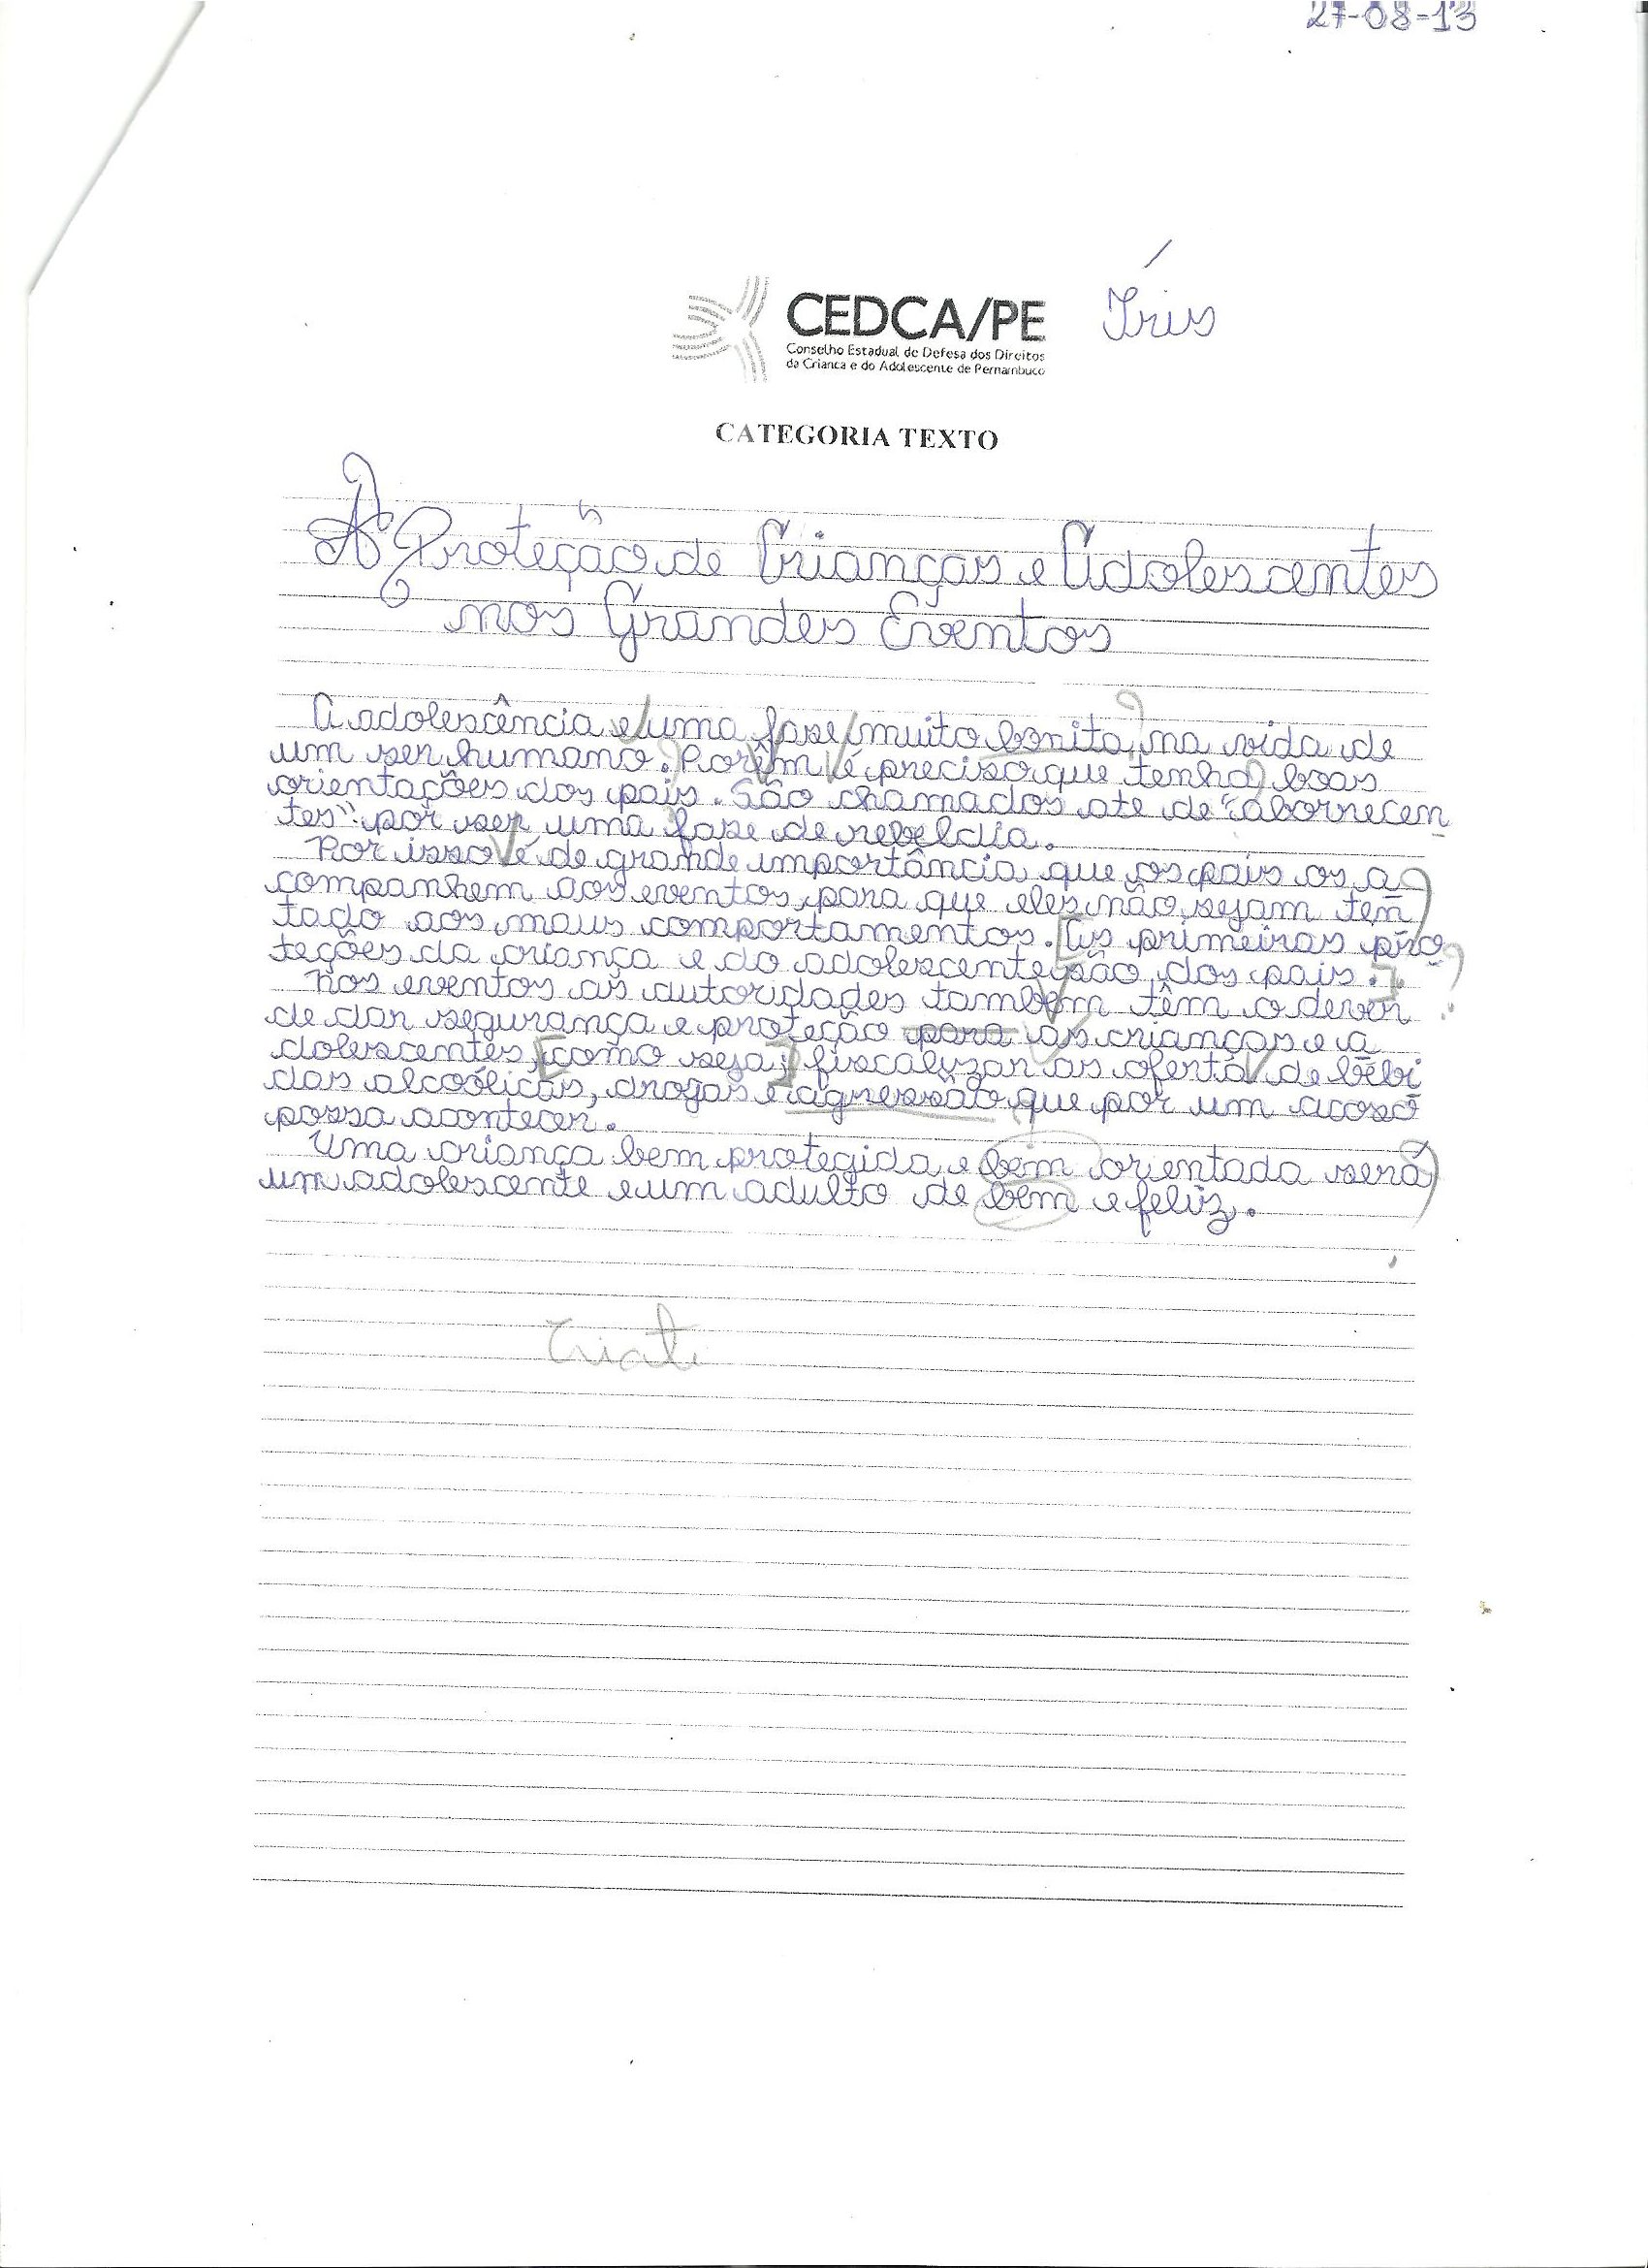 27-08-13
Íris
CEDCA/PE
Conselho Estadual de Defesa dos Direitos
da Criança e do Adolescente de Pernambuco
CATEGORIA TEXTO
A Proteção de Crianças e Adolescentes
nos Grandes Eventos
A adolescência e uma fase muito bonita, na vida de
um ser humano. Porêm é preciso que tenha boas
orientações dos pais. São chamados ate de "aborrecen
tes" por ser uma fase de rebeldia.
Por isso é de grande importância que os pais os a
companhem aos eventos para que eles não sejam ten
tado aos maus comportamentos. [As primeiras pro
teções da criança e do adolescente são dos pais.]
Nos eventos as autoridades tambem têm o dever
de dar segurança e proteção para as crianças e a
dolescentes, [como seja;] fiscalizar as oferta de bebi
das alcoólicas, drogas e agressão que por um acaso
possa acontecer.
Uma criança bem protegida e bem orientada será
um adolescente e um adulto de bem e feliz.